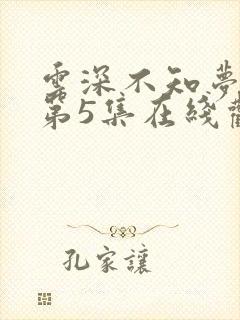 雲深不知夢
第5集在綫
孔家讓